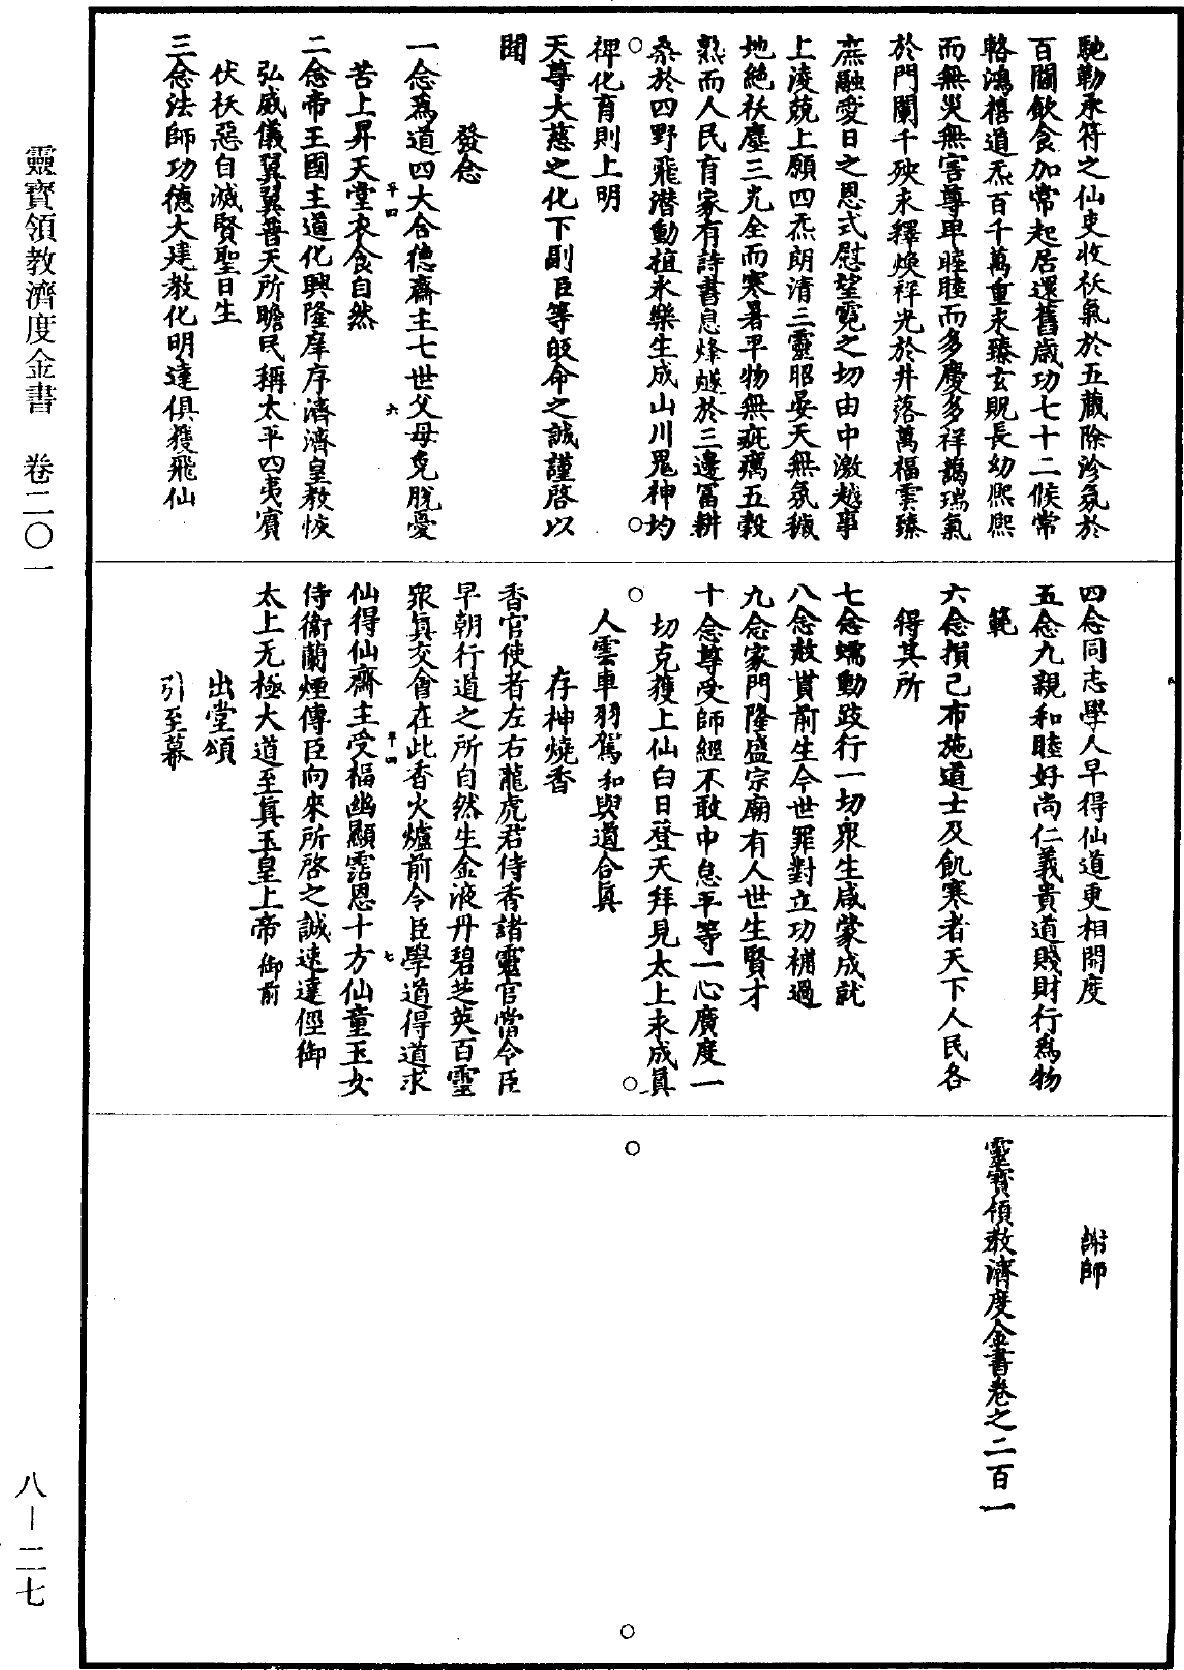 馳勒承符之仙吏收祅氣於五藏除沴氛於
百關飲食加常起居還舊歲功七十二候常
輅鴻禧道炁百千萬重求臻玄貺長幼熙熙
而無災無害尊卑睦睦而多慶多祥藹瑞氣
於門闌千殃永釋煥祥光於井落萬福雲臻
庶融愛日之恩式慰望霓之切由中激越事
上淩兢上願四炁朗清三靈昭晏天無氛穢
地絕祅塵三光全而寒暑平物無疵癘五穀
熟而人民育家有詩書息烽燧於三邊富耕
桑於四野飛潛動植永樂生成山川鬼神均
禆化育則上明
天尊大慈之化下副臣等皈命之誠謹啓以
聞
發念
一念爲道四大合德齋主七世父母免脫憂
苦上昇天堂衣食自然
二念帝王國主道化興隆庠序濟濟皇教恢
弘威儀翼翼普天所瞻民稱太平四夷賓
伏祅惡自滅賢聖日生
三念法師功德大建教化明達俱獲飛仙
四念同志學人早得仙道更相開度
五念九親和睦好尚仁義貴道賤財行爲物
範
六念損己布施道士及飢寒者天下人民各
得其所
七念蠕動跂行一切衆生咸蒙成就
八念赦貰前生今世罪對立功補過
九念家門隆盛宗廟有人世生賢才
十念尊受師經不敢中怠平等一心廣度一
切克獲上仙白日登天拜見太上永成眞
人雲車羽駕和與道合眞
存神燒香
香官使者左右龍虎君侍香諸靈官當令臣
早朝行道之所自然生金液丹碧芝英百靈
衆眞交會在此香火爐前令臣學道得道求
仙得仙齋主受福幽顯霑恩十方仙童玉女
侍衛蘭煙傳臣向來所啓之誠速達徑御
太上无極大道至眞玉皇上帝御前
出堂頌
引至幕
謝師
靈寶領教濟度金書卷之二百一
靈寶領教濟度金書 卷二〇一
八－二七
平四
六
平四
七